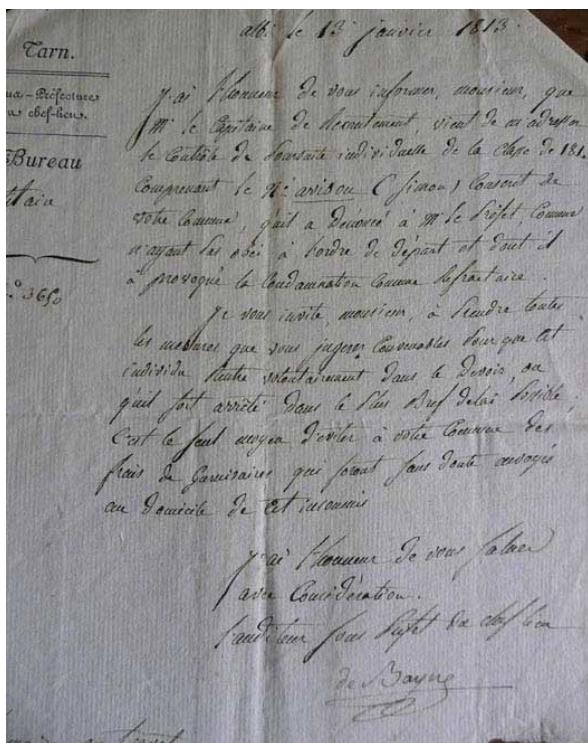 Tarn.
albi le 13 janvier 1813.
Sous-Préfecture
du chef-lieu.
Bureau
N.° 3650
J'ai l'honneur de vous informer, monsieur, que
Mr le Capitaine de Recrutement vient de m'adresser
le Contrôle de Poursuite individuelle de la classe de 181
Comprenant le né arvisou (Simon) Conscrit de
votre Commune, qu'il a Denoncé à Mr le Préfet Comme
n'ayant pas obéi à l'ordre de départ et dont il
à provoqué la Condamnation Comme Refractaire.
Je vous invite, monsieur, à Prendre toutes
les mesures que vous jugerez Convenables Pour que Cet
individu Rentre volontairement dans le Devoir, ou
quil soit arrêté dans le Plus Bref delai Possible,
C'est le seul moyen d'éviter à votre Commune des
frais de Garnisaires qui seront sans doute envoyés
au Domicile de Cet insoumis
J'ai l'honneur de vous saluer
avec Considération.
l'auditeur sous Préfet du chef lieu
de Bayne